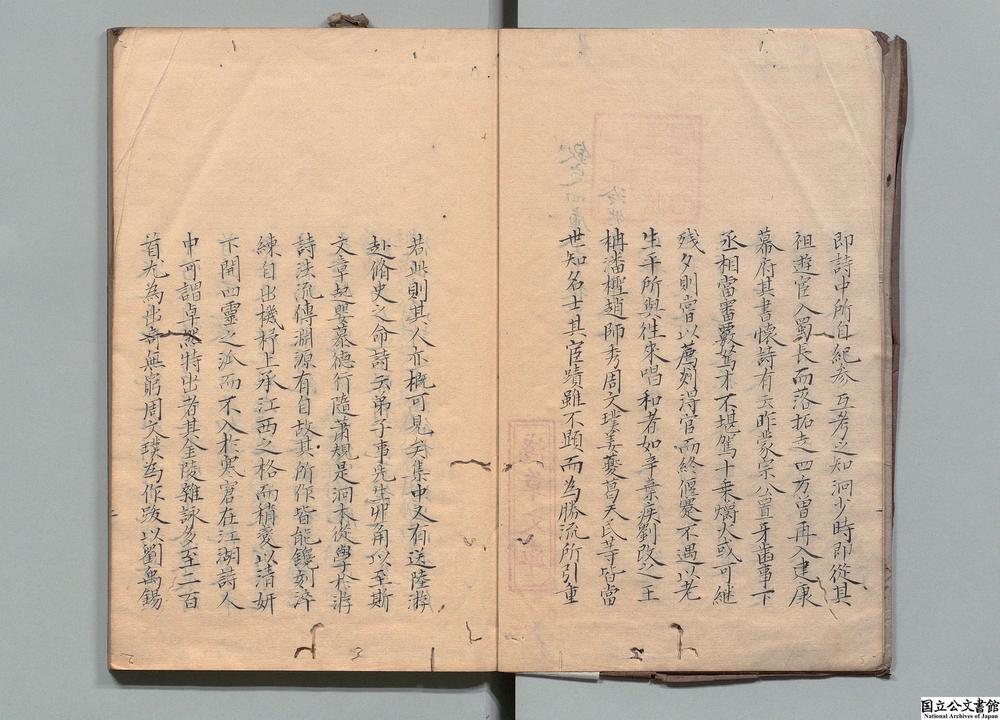 即詩中所自紀参互考之知泂少時即從其
祖遊宦入蜀長而落拓走四方曽再入建康
幕府其書懷詩有云昨蒙宗公置牙齒事下
丞相當審覈駑才不堪駕十乗爝火或可継
残夕則嘗以薦剡得官而終偃蹇不遇以老
生平所與徃來唱和者如辛棄疾劉改之王
柟潘檉趙師秀周文璞姜夔葛天民等皆當
世知名士其宦蹟雖不顕而為勝流所引重
若此則其人亦概可見矣集中又有送陸游
赴脩史之命詩云弟子事先生丱角以至斯
文章起嬰慕德行隨蕭規是泂本從學於游
詩法流傳淵源有自故其所作皆能鑱刻淬
練自出機杼上承江西之格而稍変以清妍
下開四靈之派而不入於寒窘在江湖詩人
中可謂卓然特出者其金陵雜詠多至二百
首尤為出奇無窮周文璞為作跋以劉禹錫
国立公文書館
National Archives of Japan